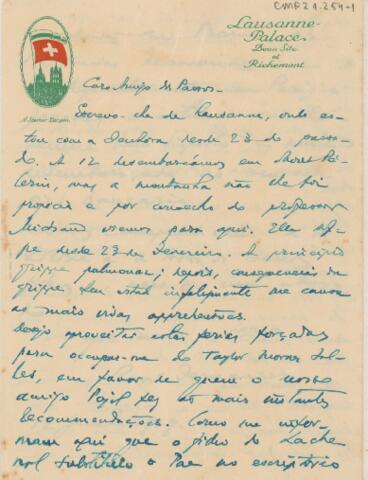 CMF21.254-1
Lausanne-
Palace
Beau Site
et
Richemont
Caro Amigo Dr Passos.
Escrevo-lhe de Lausanne, onde es-
tou com a Senhora desde 23 do passa-
do. A 12 desembarcámos em Mont Pé-
lerin, mas a montanha não lhe foi
propicia e por conselho do professor
viemos para aqui. Ella
desde 23 de Fevereiro. A principio
grippe pulmonar; depois, consequencias da
grippe. Seu estado me causa
as mais vivas apprehensões.
Desejo aproveitar estas ferias forçadas
para occupar-me do Taylor
em favor de quem o nosso
amigo fez as mais instantes
recommendações. Como me infor-
mam aqui que o filho do Lache
nal substitue o Pae no escriptorio